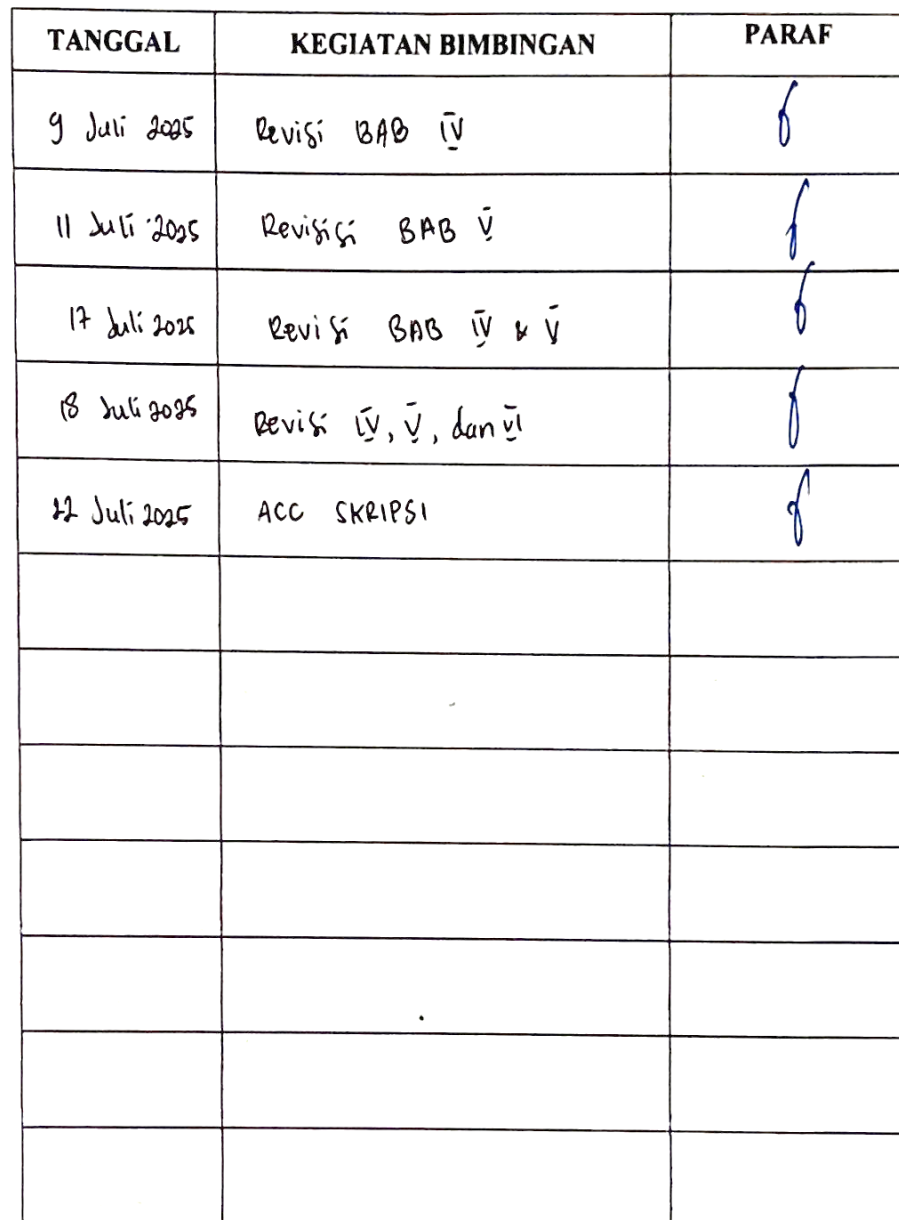 TANGGAL KEGIATAN BIMBINGAN PARAF
9 Juli 2025 Revisi BAB IV
11 Juli 2025 Revisisi BAB V
17 Juli 2025 Revisi BAB IV & V
18 Juli 2025 Revisi IV, V, dan VI
22 Juli 2025 ACC SKRIPSI